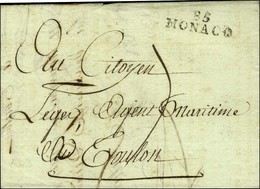 85
MONACO
Au Citoyen
Agent Maritime
Toulon